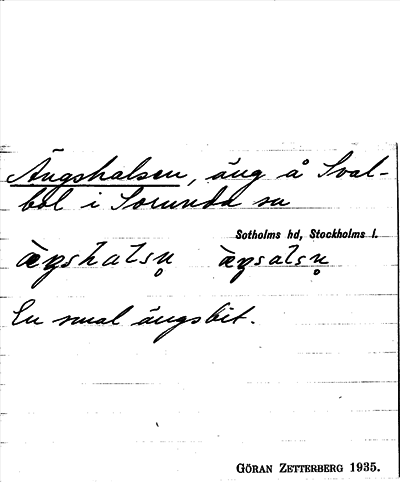 Ängshalsen, äng å Sval-
bol i Sorunda sn
Sotholms hd, Stockholms l.
En smal ängsbit.
GÖRAN ZETTERBERG 1935.